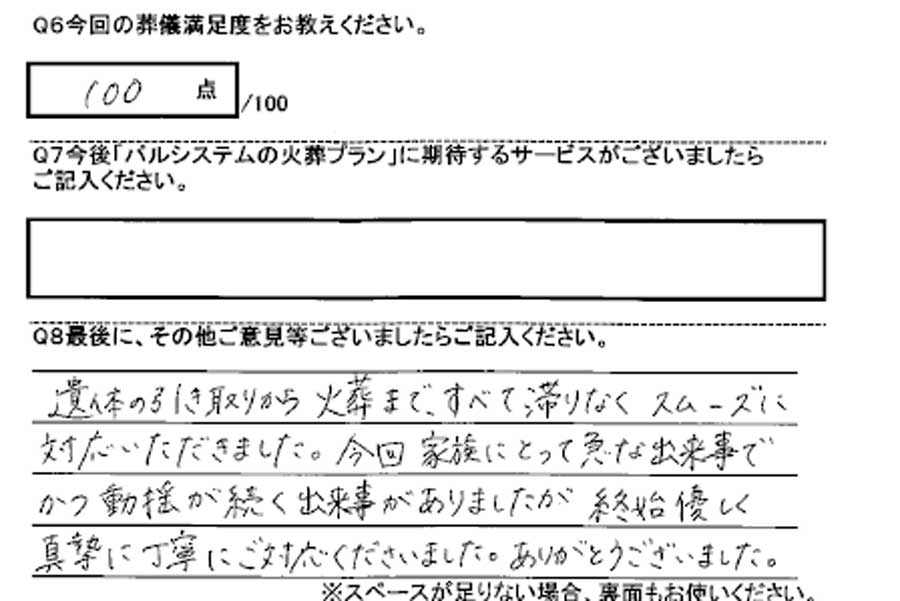 Q6今回の葬儀満足度をお教えください。
100 点 /100
Q7今後「パルシステムの火葬プラン」に期待するサービスがございましたら
ご記入ください。
Q8最後に、その他ご意見等ございましたらご記入ください。
遺体の引き取りから火葬まで、すべて滞りなくスムーズに
対応いただきました。今回家族にとって急な出来事で
かつ動揺が続く出来事がありましたが終始優しく
真摯に丁寧にご対応くださいました。ありがとうございました。
※スペースが足りない場合、裏面もお使いください。